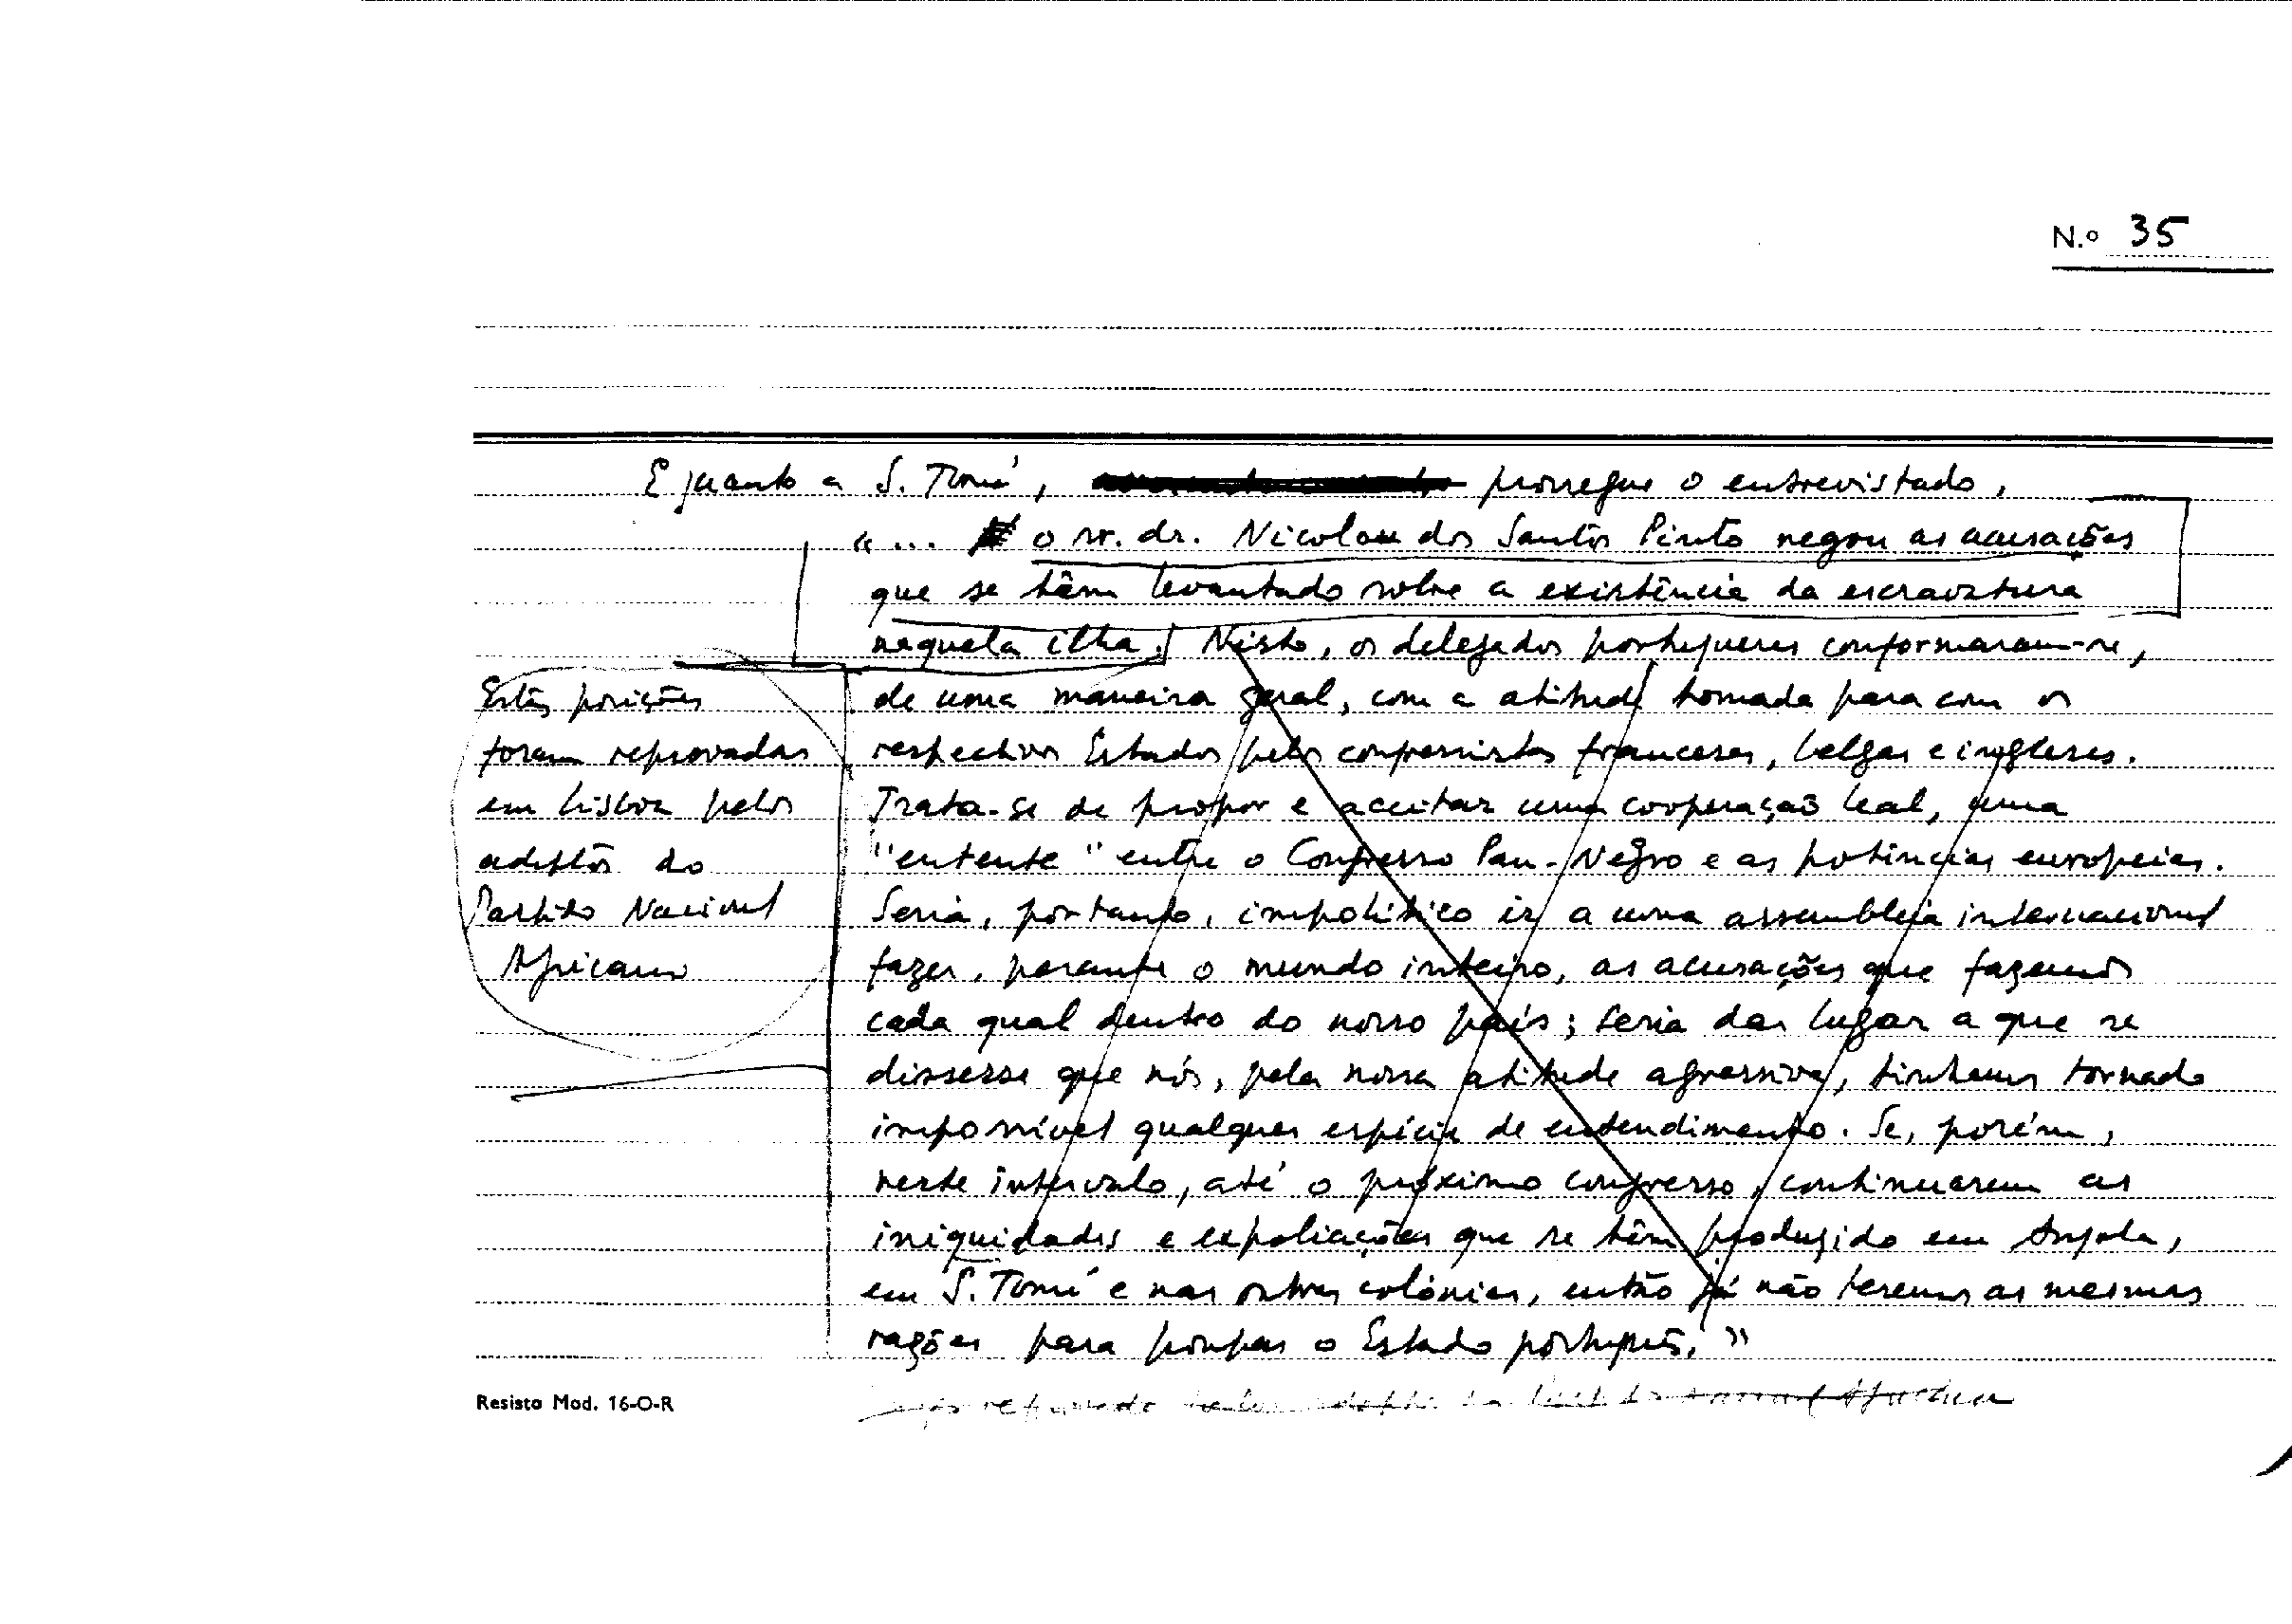 N.º 35
E quanto a S. Tomé, prossegue o entrevistado,
"... o sr. dr. Nicolau dos Santos Pinto negou as acusações
que se têm levantado sobre a existência da escravatura
naquela ilha. Nisto, os delegados portugueses conformaram-se,
de uma maneira geral, com a atitude tomada para com os
respectivos Estados pelos congressistas franceses, belgas e ingleses.
Trata-se de propor e aceitar uma cooperação leal, uma
"entente" entre o Congresso Pan-Negro e as potências europeias.
Seria, portanto, impolítico ir a uma assembleia internacional
fazer, perante o mundo inteiro, as acusações que fazemos
cada qual dentro do nosso país; seria dar lugar a que se
dissesse que nós, pela nossa atitude agressiva, tínhamos tornado
impossível qualquer espécie de entendimento. Se, porém,
neste intervalo, até o próximo congresso, continuarem as
iniquidades e expoliações que se têm produzido em Angola,
em S. Tomé e nas outras colónias, então já não teremos as mesmas
razões para poupar o Estado português."
Estas posições
foram reprovadas
em Lisboa pelos
adeptos do
Partido Nacional
Africano
Resisto Mod. 16-O-R